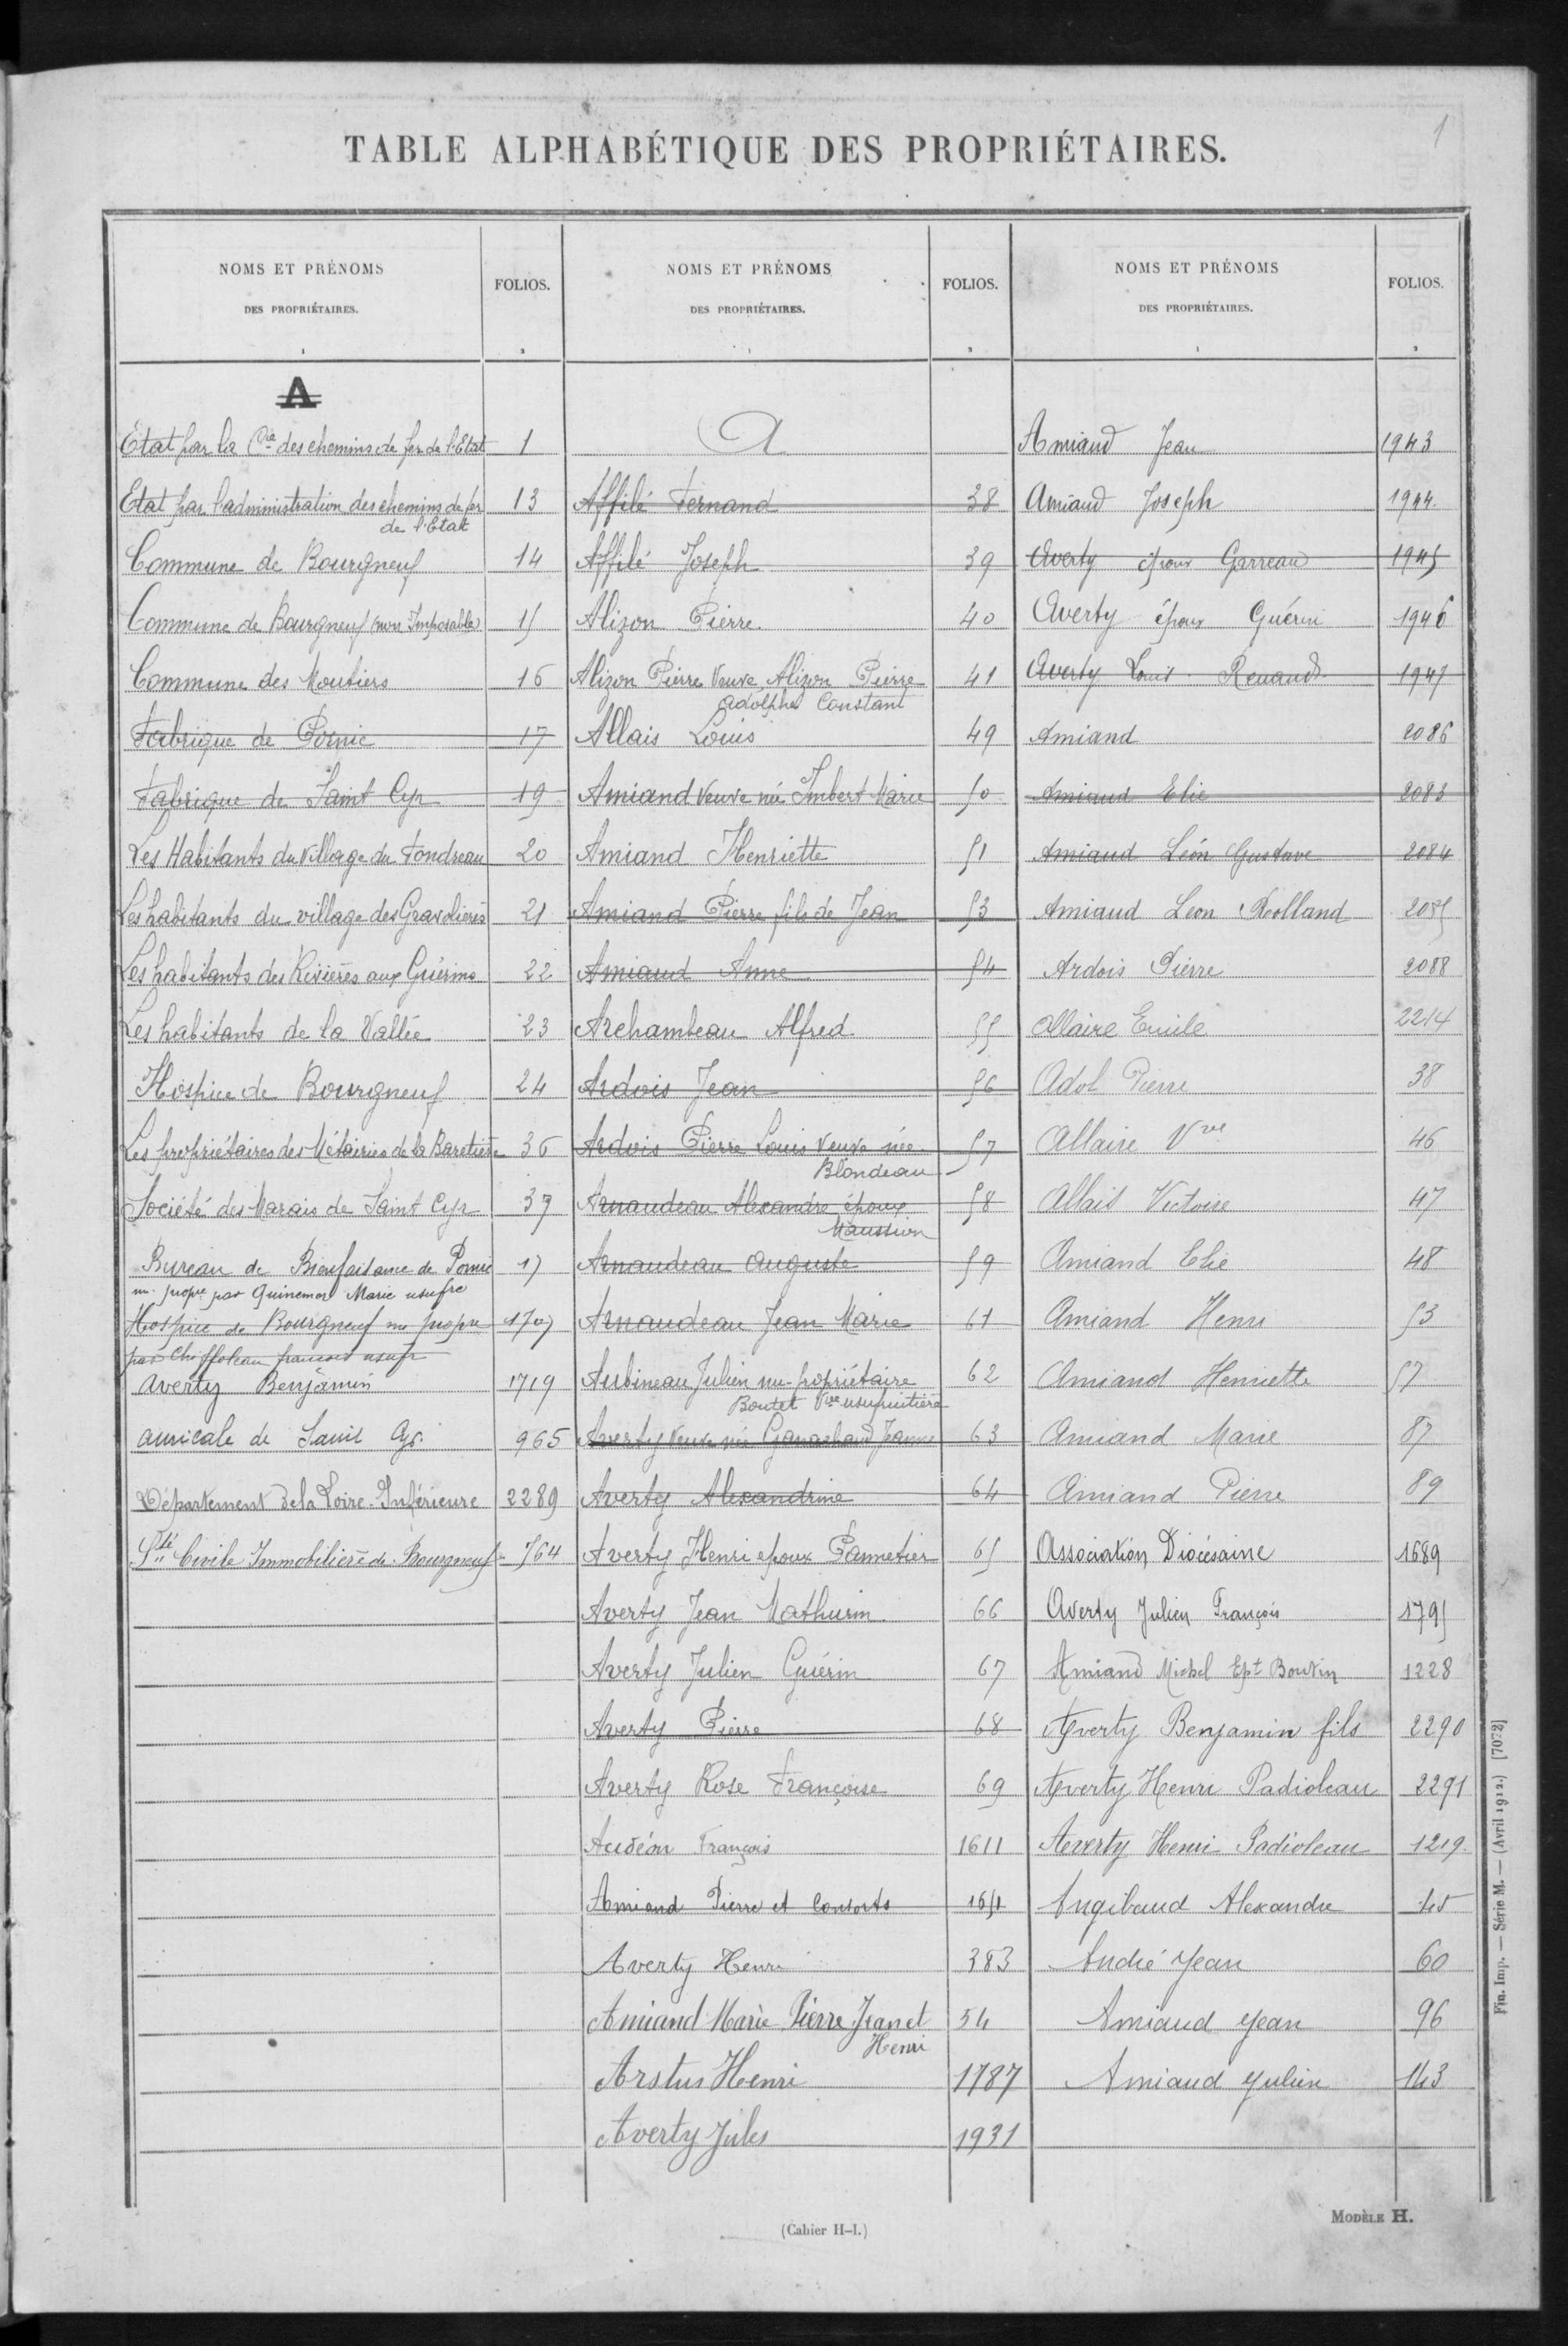 1
TABLE ALPHABÉTIQUE DES PROPRIÉTAIRES.
NOMS ET PRÉNOMS
DES PROPRIÉTAIRES.
FOLIOS.
A
Etat par la Cie des chemins de fer de l'Etat 1
Etat par l'administration des chemins de fer 13
de l'Etat
Commune de Bourgneuf 14
Commune de Bourgneuf (non Imposable) 15
Commune des Moutiers 16
Fabrique de Pornic 17
Fabrique de Saint Cyr 19
Les Habitants du Village du Fondreau 20
Les habitants du village des Gravolières 21
Les habitants des Rivières aux Guérins 22
Les habitants de la Vallée 23
Hospice de Bourgneuf 24
Les propriétaires des Métairies de la Baretière 36
Société des Marais de Saint Cyr 37
Bureau de Bienfaisance de Pornic 17
nu-propre par Guinement Marie usufre
Hospice de Bourgneuf nu propre 1707
par Chiffoleau francois usufr
Averty Benjamin 1719
Amicale de Saint Cyr 965
Département de la Loire-Inférieure 2289
Sté Civile Immobilière de Bourgneuf 764
NOMS ET PRÉNOMS
DES PROPRIÉTAIRES.
FOLIOS.
A
Affilé Fernand 38
Affilé Joseph 39
Alizon Pierre 40
Alizon Pierre Veuve, Alizon Pierre 41
Adolphe Constant
Allais Louis 49
Amiand Veuve née Imbert Marie 50
Amiand Henriette 51
Amiand Pierre fils de Jean 53
Amiaud Anne 54
Archambeau Alfred 55
Ardois Jean 56
Ardois Pierre Louis Veuve née 57
Blondeau
Arnaudeau Alexandre époux 58
Maussion
Arnaudeau Auguste 59
Arnaudeau Jean Marie 61
Aubineau Julien nu-propriétaire 62
Boutet Vve usufruitière
Averty Veuve née Ganachaud Jeanne 63
Averty Alexandrine 64
Averty Henri époux Pannetier 65
Averty Jean Mathurin 66
Averty Julien Guérin 67
Averty Pierre 68
Averty Rose Françoise 69
Audéon François 1611
Amiand Pierre et Consorts 1651
Averty Henri 383
Amiand Marie Pierre Jean et 54
Henri
Arstus Henri 1787
Averty Jules 1931
NOMS ET PRÉNOMS
DES PROPRIÉTAIRES.
FOLIOS.
Amiaud Jean 1943
Amiaud Joseph 1944
Averty époux Garreau 1945
Averty époux Guérin 1946
Averty Louis Renaud 1947
Amiand 2086
Amiaud Elie 2083
Amiaud Léon Gustave 2084
Amiaud Léon Rolland 2085
Ardois Pierre 2088
Allaire Emile 2214
Adol Pierre 38
Allaire Vve 46
Allais Victoire 47
Amiand Elie 48
Amiand Henri 53
Amiand Henriette 57
Amiand Marie 87
Amiand Pierre 89
Association Diocésaine 1689
Averty Julien François 1795
Amiand Michel Ept Boutin 1228
Averty Benjamin fils 2290
Averty Henri Padioleau 2291
Averty Henri Padioleau 1219
Angibaud Alexandre 45
André Jean 60
Amiaud Jean 96
Amiaud Julien 143
Fin. Imp. — Série M. — (Avril 1912.) [7072]
(Cahier H-I.)
MODÈLE H.